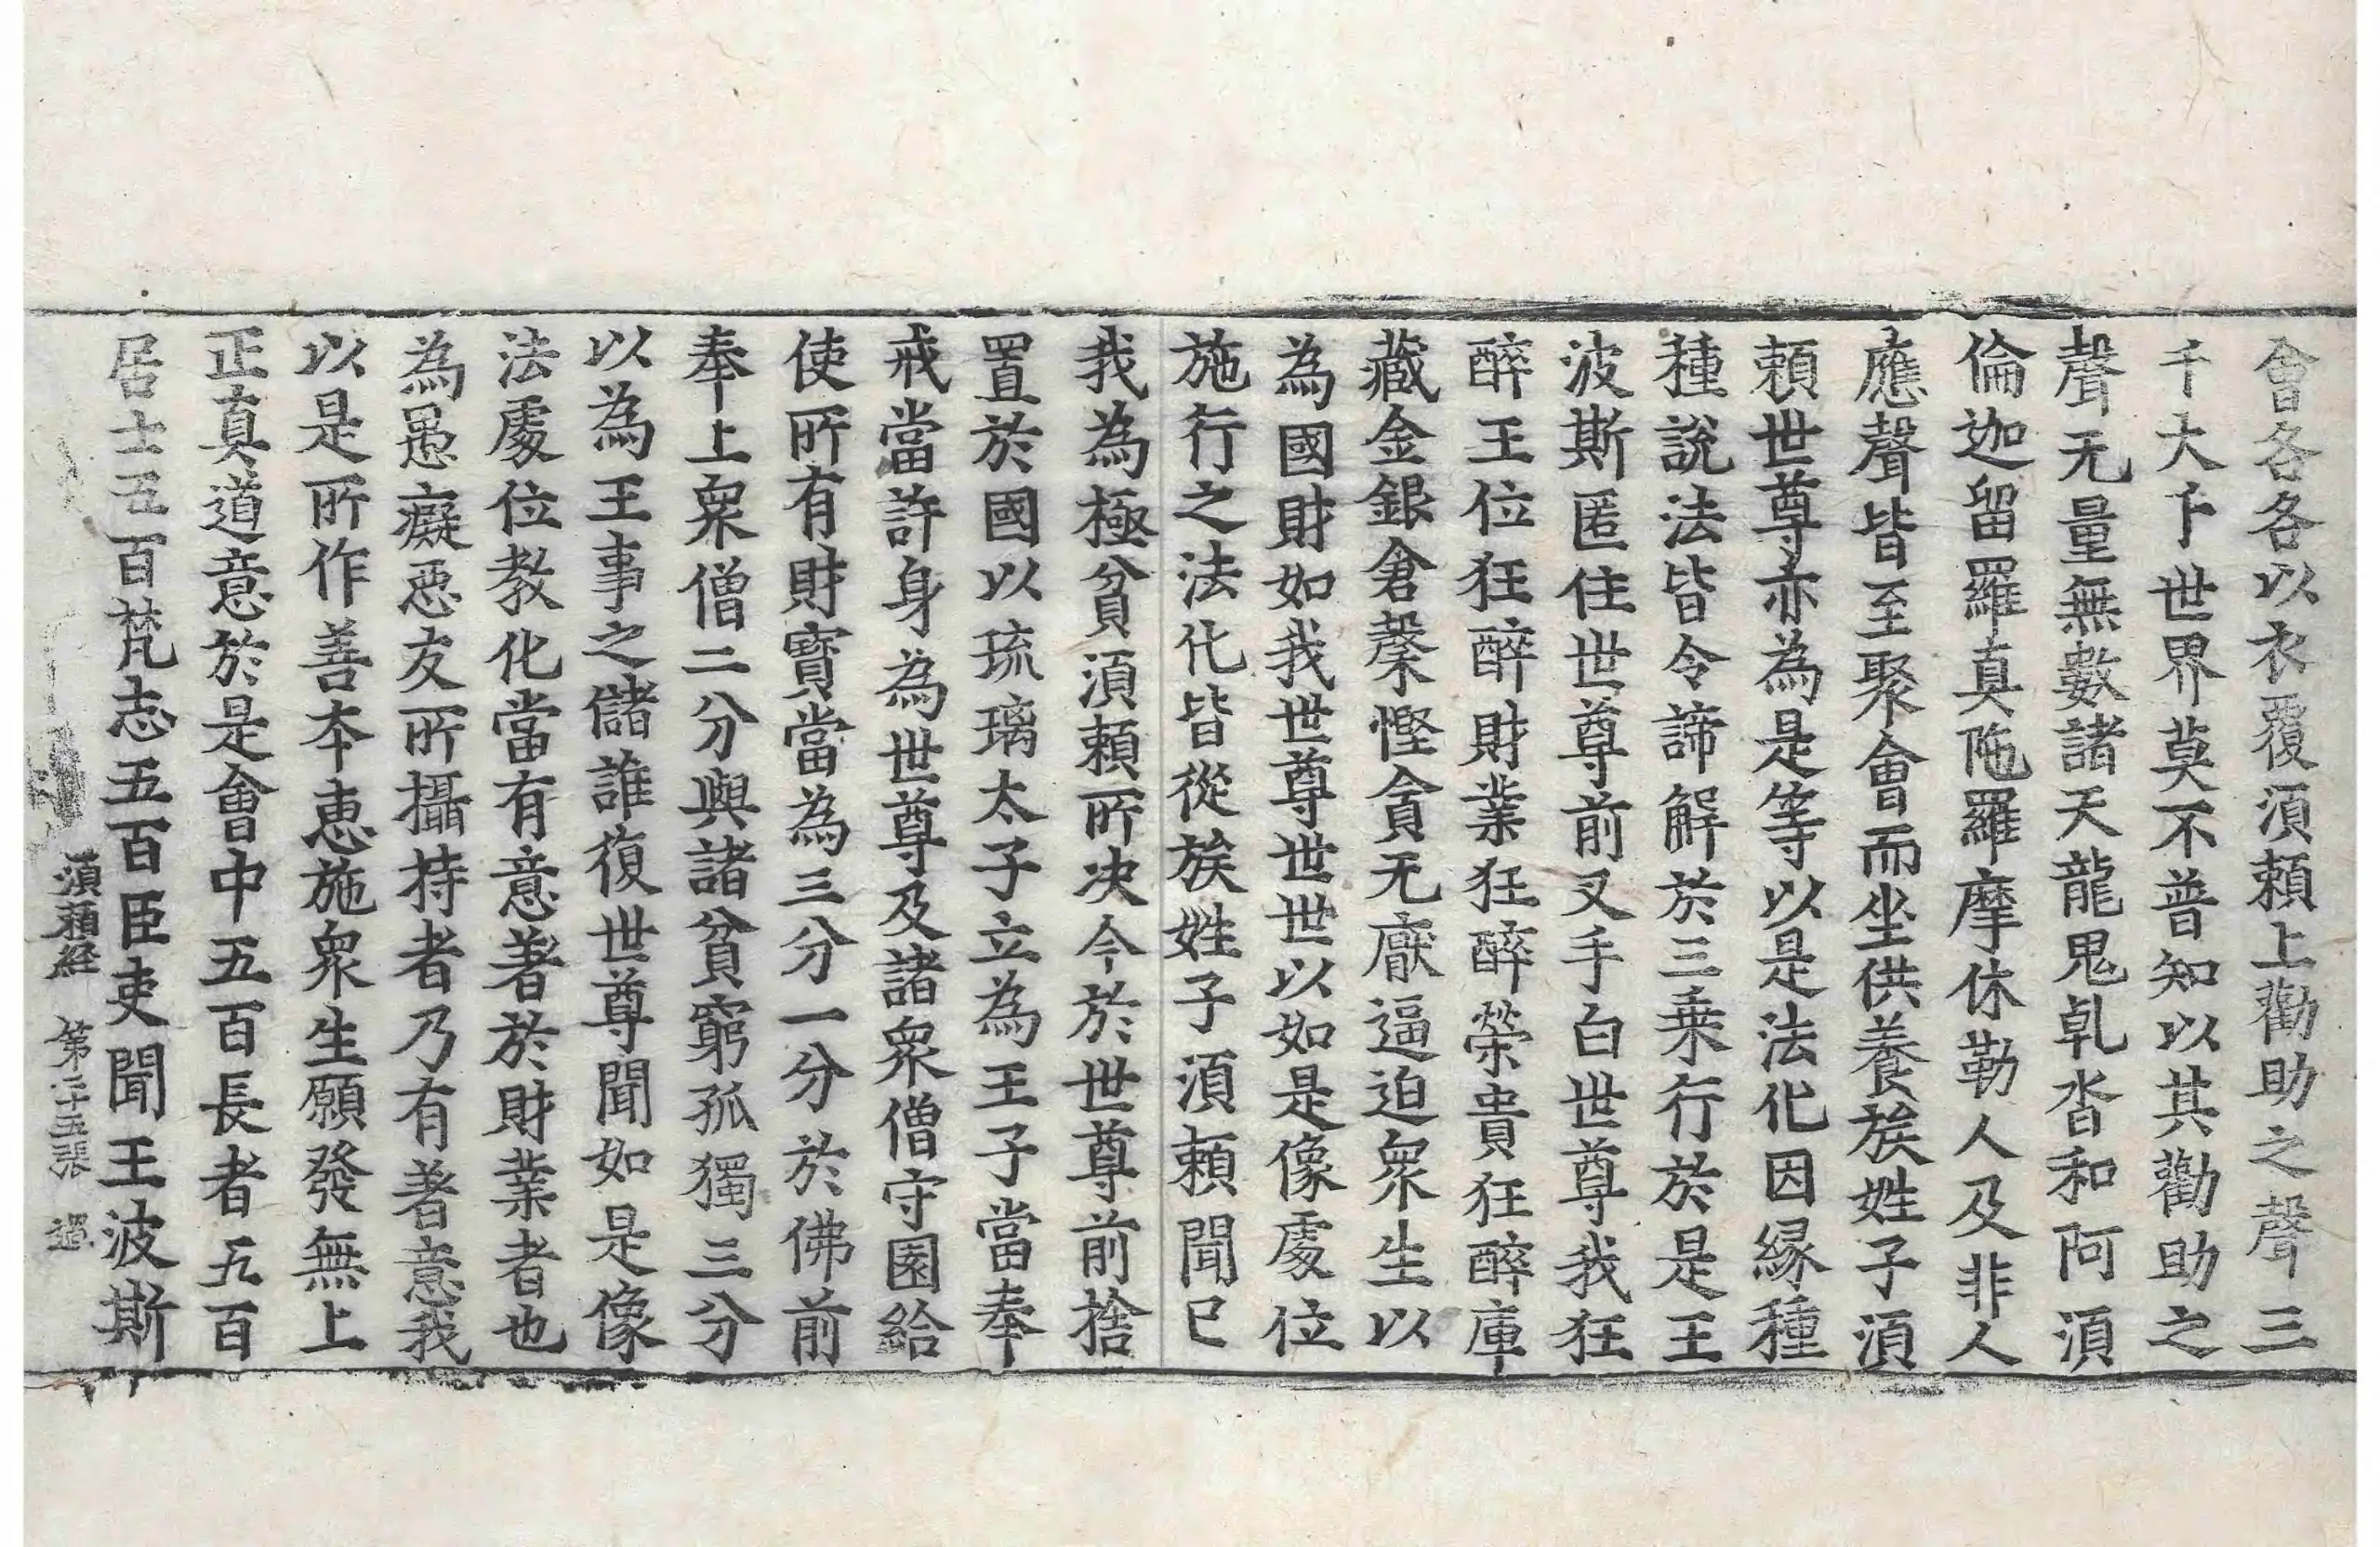 會各各以衣覆湏頼上勸助之聲三
千大千世界莫不普知以其勸助之
聲无量無數諸天龍鬼乹沓和阿湏
倫迦留羅真陁羅摩休勒人及非人
應聲皆至聚會而坐供養族姓子湏
頼世尊亦為是等以是法化因縁種
種說法皆令諦解於三乗行於是王
波斯匿住世尊前叉手白世尊我狂
醉王位狂醉財業狂醉榮貴狂醉庫
藏金銀倉㯗慳貪无厭逼迫衆生以
為國財如我世尊世世以如是像處位
施行之法化皆從族姓子湏頼聞已
我為極貧湏頼所决今於世尊前捨
置於國以琉璃太子立為王子當奉
戒當許身為世尊及諸衆僧守園給
使所有財寳當為三分一分於佛前
奉上衆僧二分與諸貧窮孤獨三分
以為王事之儲誰復世尊聞如是像
法處位教化當有意著於財業者也
為愚癡惡友所攝持者乃有著意我
以是所作善本惠施衆生願發無上
正真道意於是會中五百長者五百
居士五百梵志五百臣吏聞王波斯
湏頼経 第二十五張